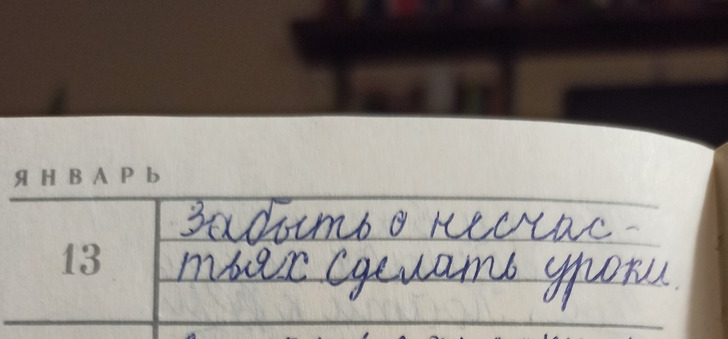 ЯНВАРЬ
13
Забыть о несчас-
тьях сделать уроки.